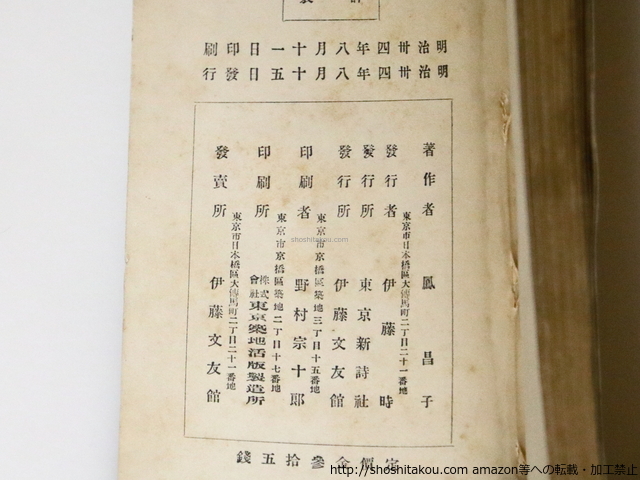 明治卅四年八月十一日印刷
明治卅四年八月十五日發行
著作者 鳳昌子
東京市日本橋區大傳馬町二丁目二十一番地
發行者 伊藤時
發行所 東京新詩社
發行所 伊藤文友館
東京市京橋區築地三丁目十五番地
印刷者 野村宗十郎
東京市京橋區築地二丁目十七番地
印刷所 株式會社東京築地活版製造所
東京市日本橋區大傳馬町二丁目二十一番地
發賣所 伊藤文友館
定價金參拾五錢
shoshitakou.com
http://shoshitakou.com amazon等への転載・加工禁止